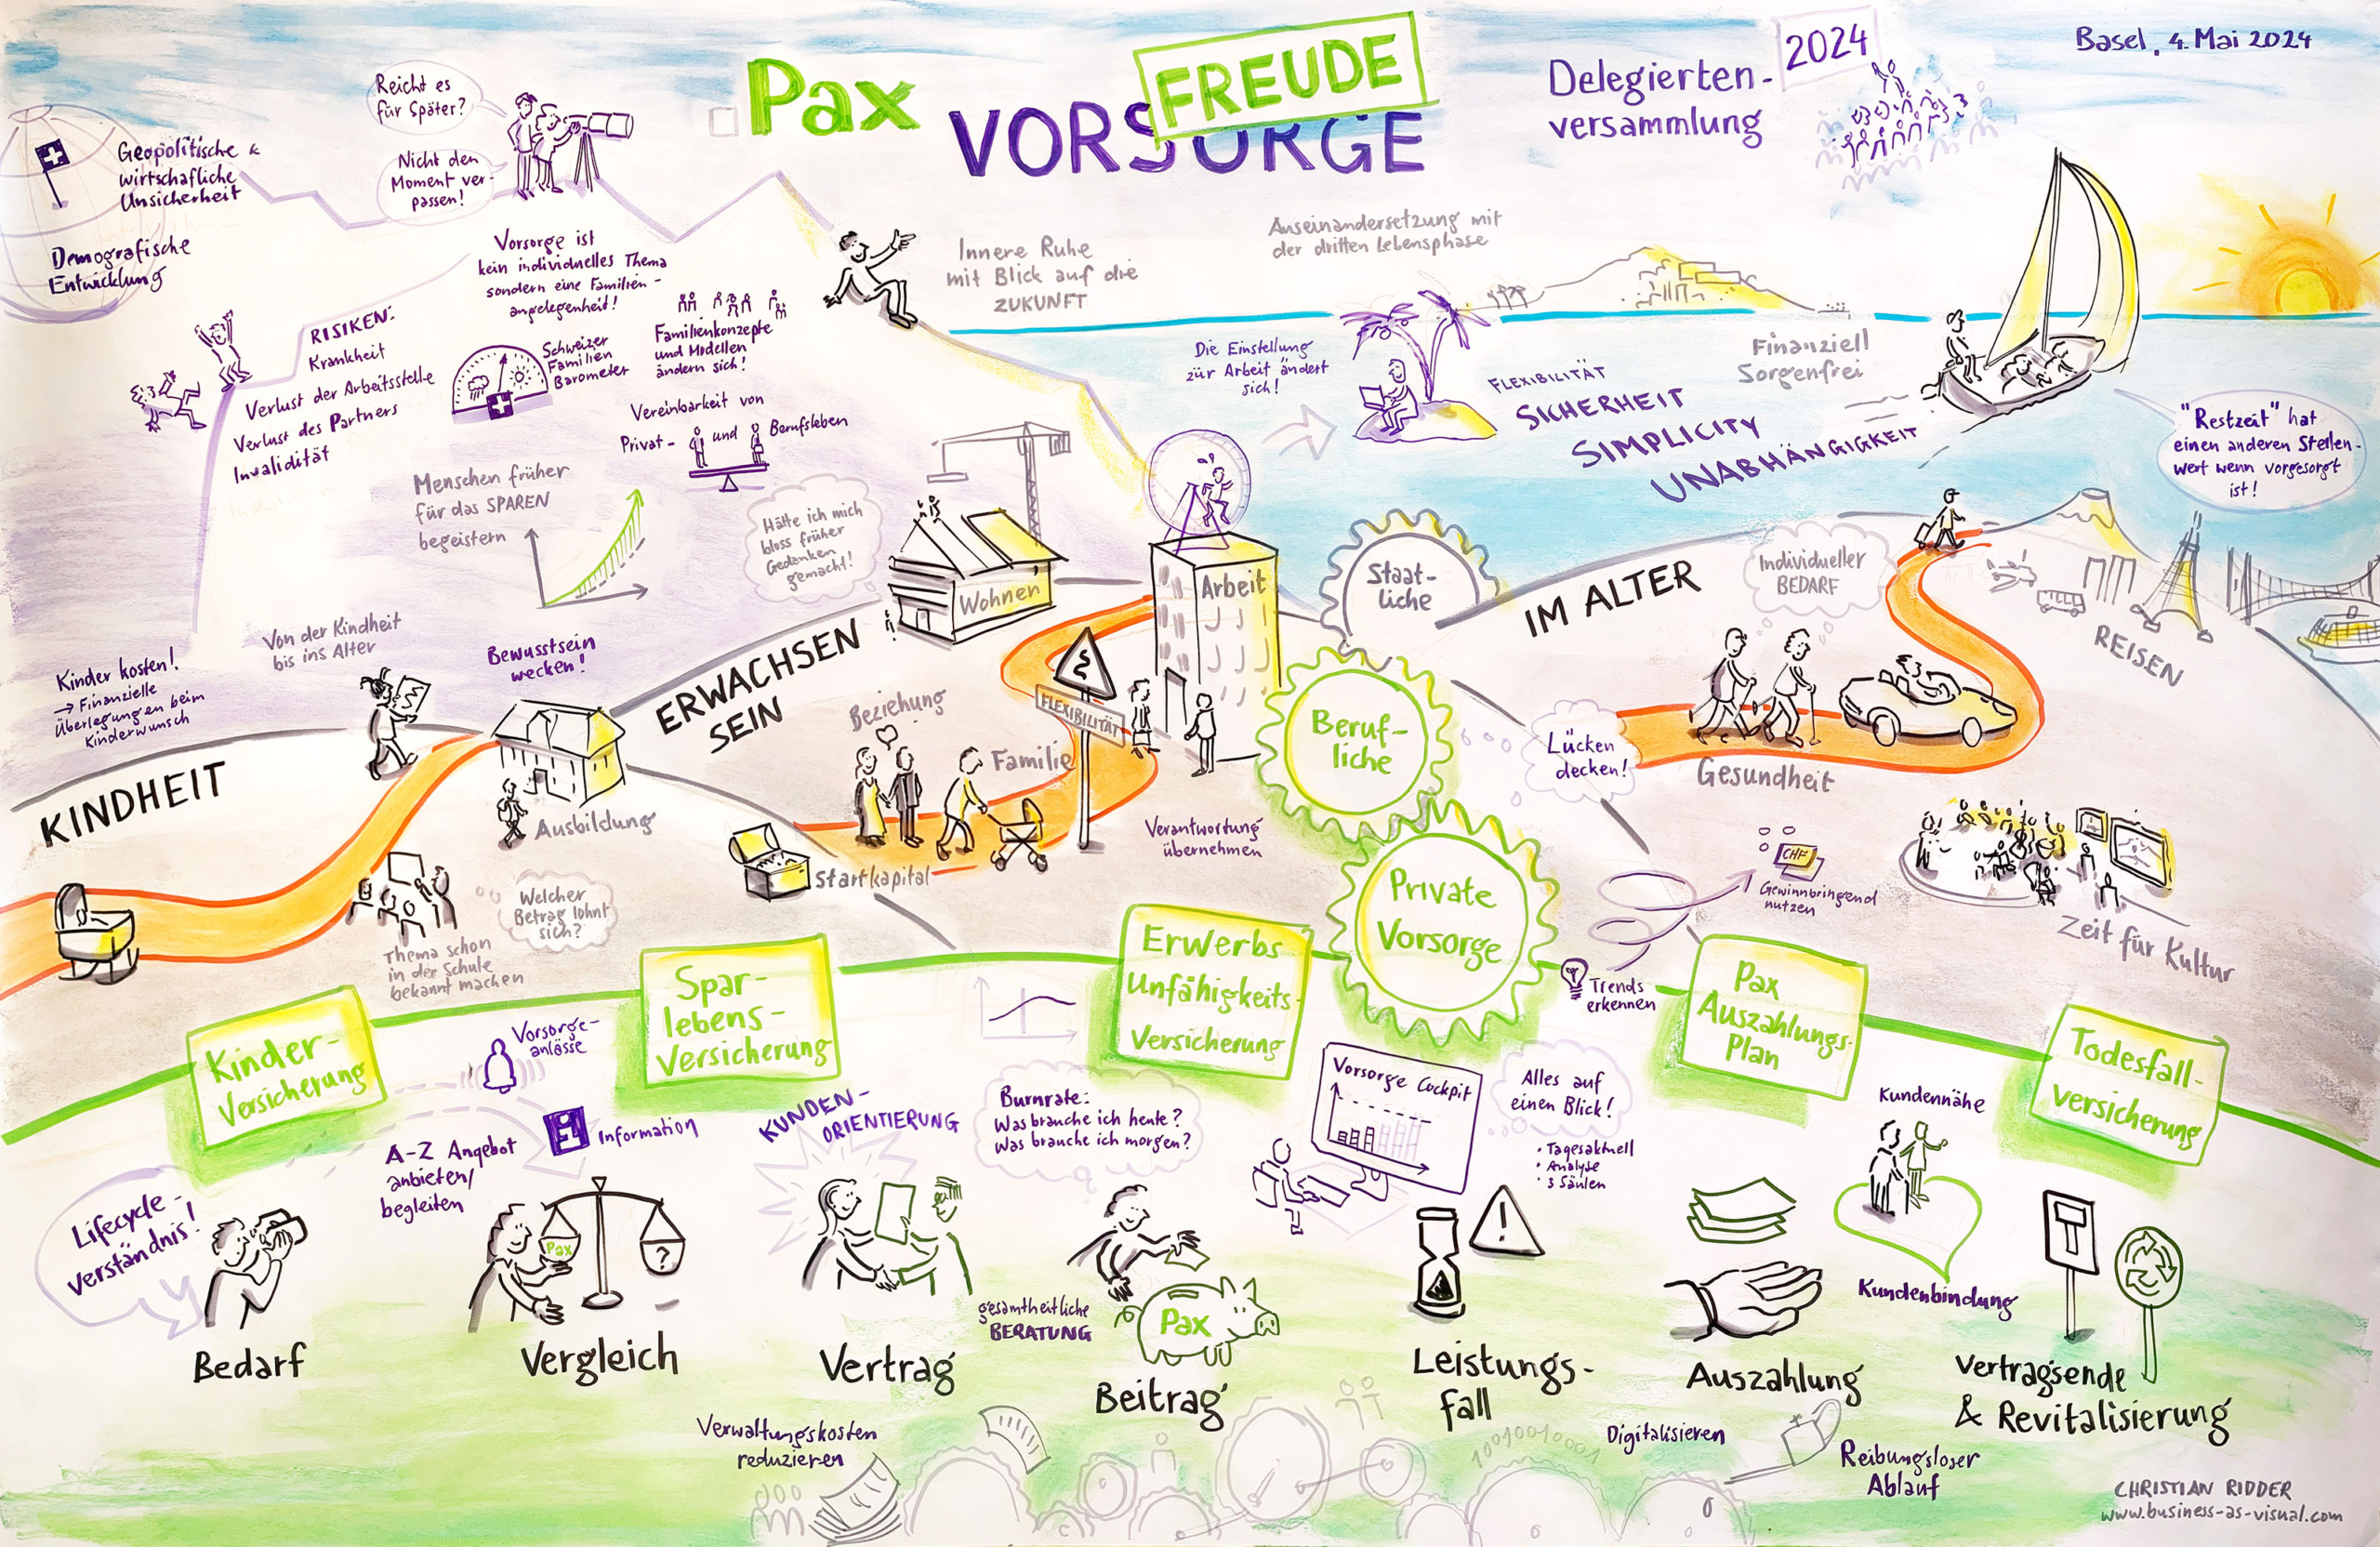 Pax
FREUDE
VORSORGE
Delegierten-
versammlung
2024
Basel, 4. Mai 2024
Geopolitische &
wirtschaftliche
Unsicherheit
Demografische
Entwicklung
Reicht es
für Später?
Nicht den
Moment ver-
passen!
Vorsorge ist
kein individuelles Thema
sondern eine Familien-
angelegenheit!
RISIKEN:
Krankheit
Verlust der Arbeitsstelle
Verlust des Partners
Invalidität
Schweizer
Familien
Barometer
Familienkonzepte
und Modellen
ändern sich!
Vereinbarkeit von
Privat- und Berufsleben
Innere Ruhe
mit Blick auf die
ZUKUNFT
Auseinandersetzung mit
der dritten Lebensphase
Die Einstellung
zür Arbeit ändert
sich!
FLEXIBILITÄT
SICHERHEIT
SIMPLICITY
UNABHÄNGIGKEIT
Finanziell
Sorgenfrei
"Restzeit" hat
einen anderen Stellen-
wert wenn vorgesorgt
ist!
Menschen früher
für das SPAREN
begeistern
Hätte ich mich
bloss früher
Gedanken
gemacht!
Von der Kindheit
bis ins Alter
Bewusstsein
wecken!
Kinder kosten!
→ Finanzielle
Überlegungen beim
Kinderwunsch
KINDHEIT
Ausbildung
Thema schon
in der Schule
bekannt machen
Welcher
Betrag lohnt
sich?
ERWACHSEN
SEIN
Wohnen
Arbeit
Beziehung
Familie
FLEXIBILITÄT
Startkapital
Verantwortung
übernehmen
Staat-
liche
Beruf-
liche
Private
Vorsorge
IM ALTER
Individueller
BEDARF
REISEN
Lücken
decken!
Gesundheit
CHF
Gewinnbringend
nutzen
Zeit für Kultur
Trends
erkennen
Kinder-
Versicherung
Spar-
lebens-
Versicherung
Erwerbs
Unfähigkeits-
Versicherung
Pax
Auszahlungs-
Plan
Todesfall-
versicherung
Vorsorge-
anlässe
A-Z Angebot
anbieten/
begleiten
i
Information
KUNDEN-
ORIENTIERUNG
Burnrate:
Was brauche ich heute?
Was brauche ich morgen?
Vorsorge Cockpit
Alles auf
einen Blick!
• Tagesaktuell
• Analyse
• 3 Säulen
Kundennähe
Kundenbindung
Lifecycle-
verständnis!
Pax
?
gesamtheitliche
BERATUNG
Pax
!
Bedarf
Vergleich
Vertrag
Beitrag
Leistungs-
fall
Auszahlung
Vertragsende
& Revitalisierung
Verwaltungskosten
reduzieren
10010010001
Digitalisieren
Reibungsloser
Ablauf
CHRISTIAN RIDDER
www.business-as-visual.com